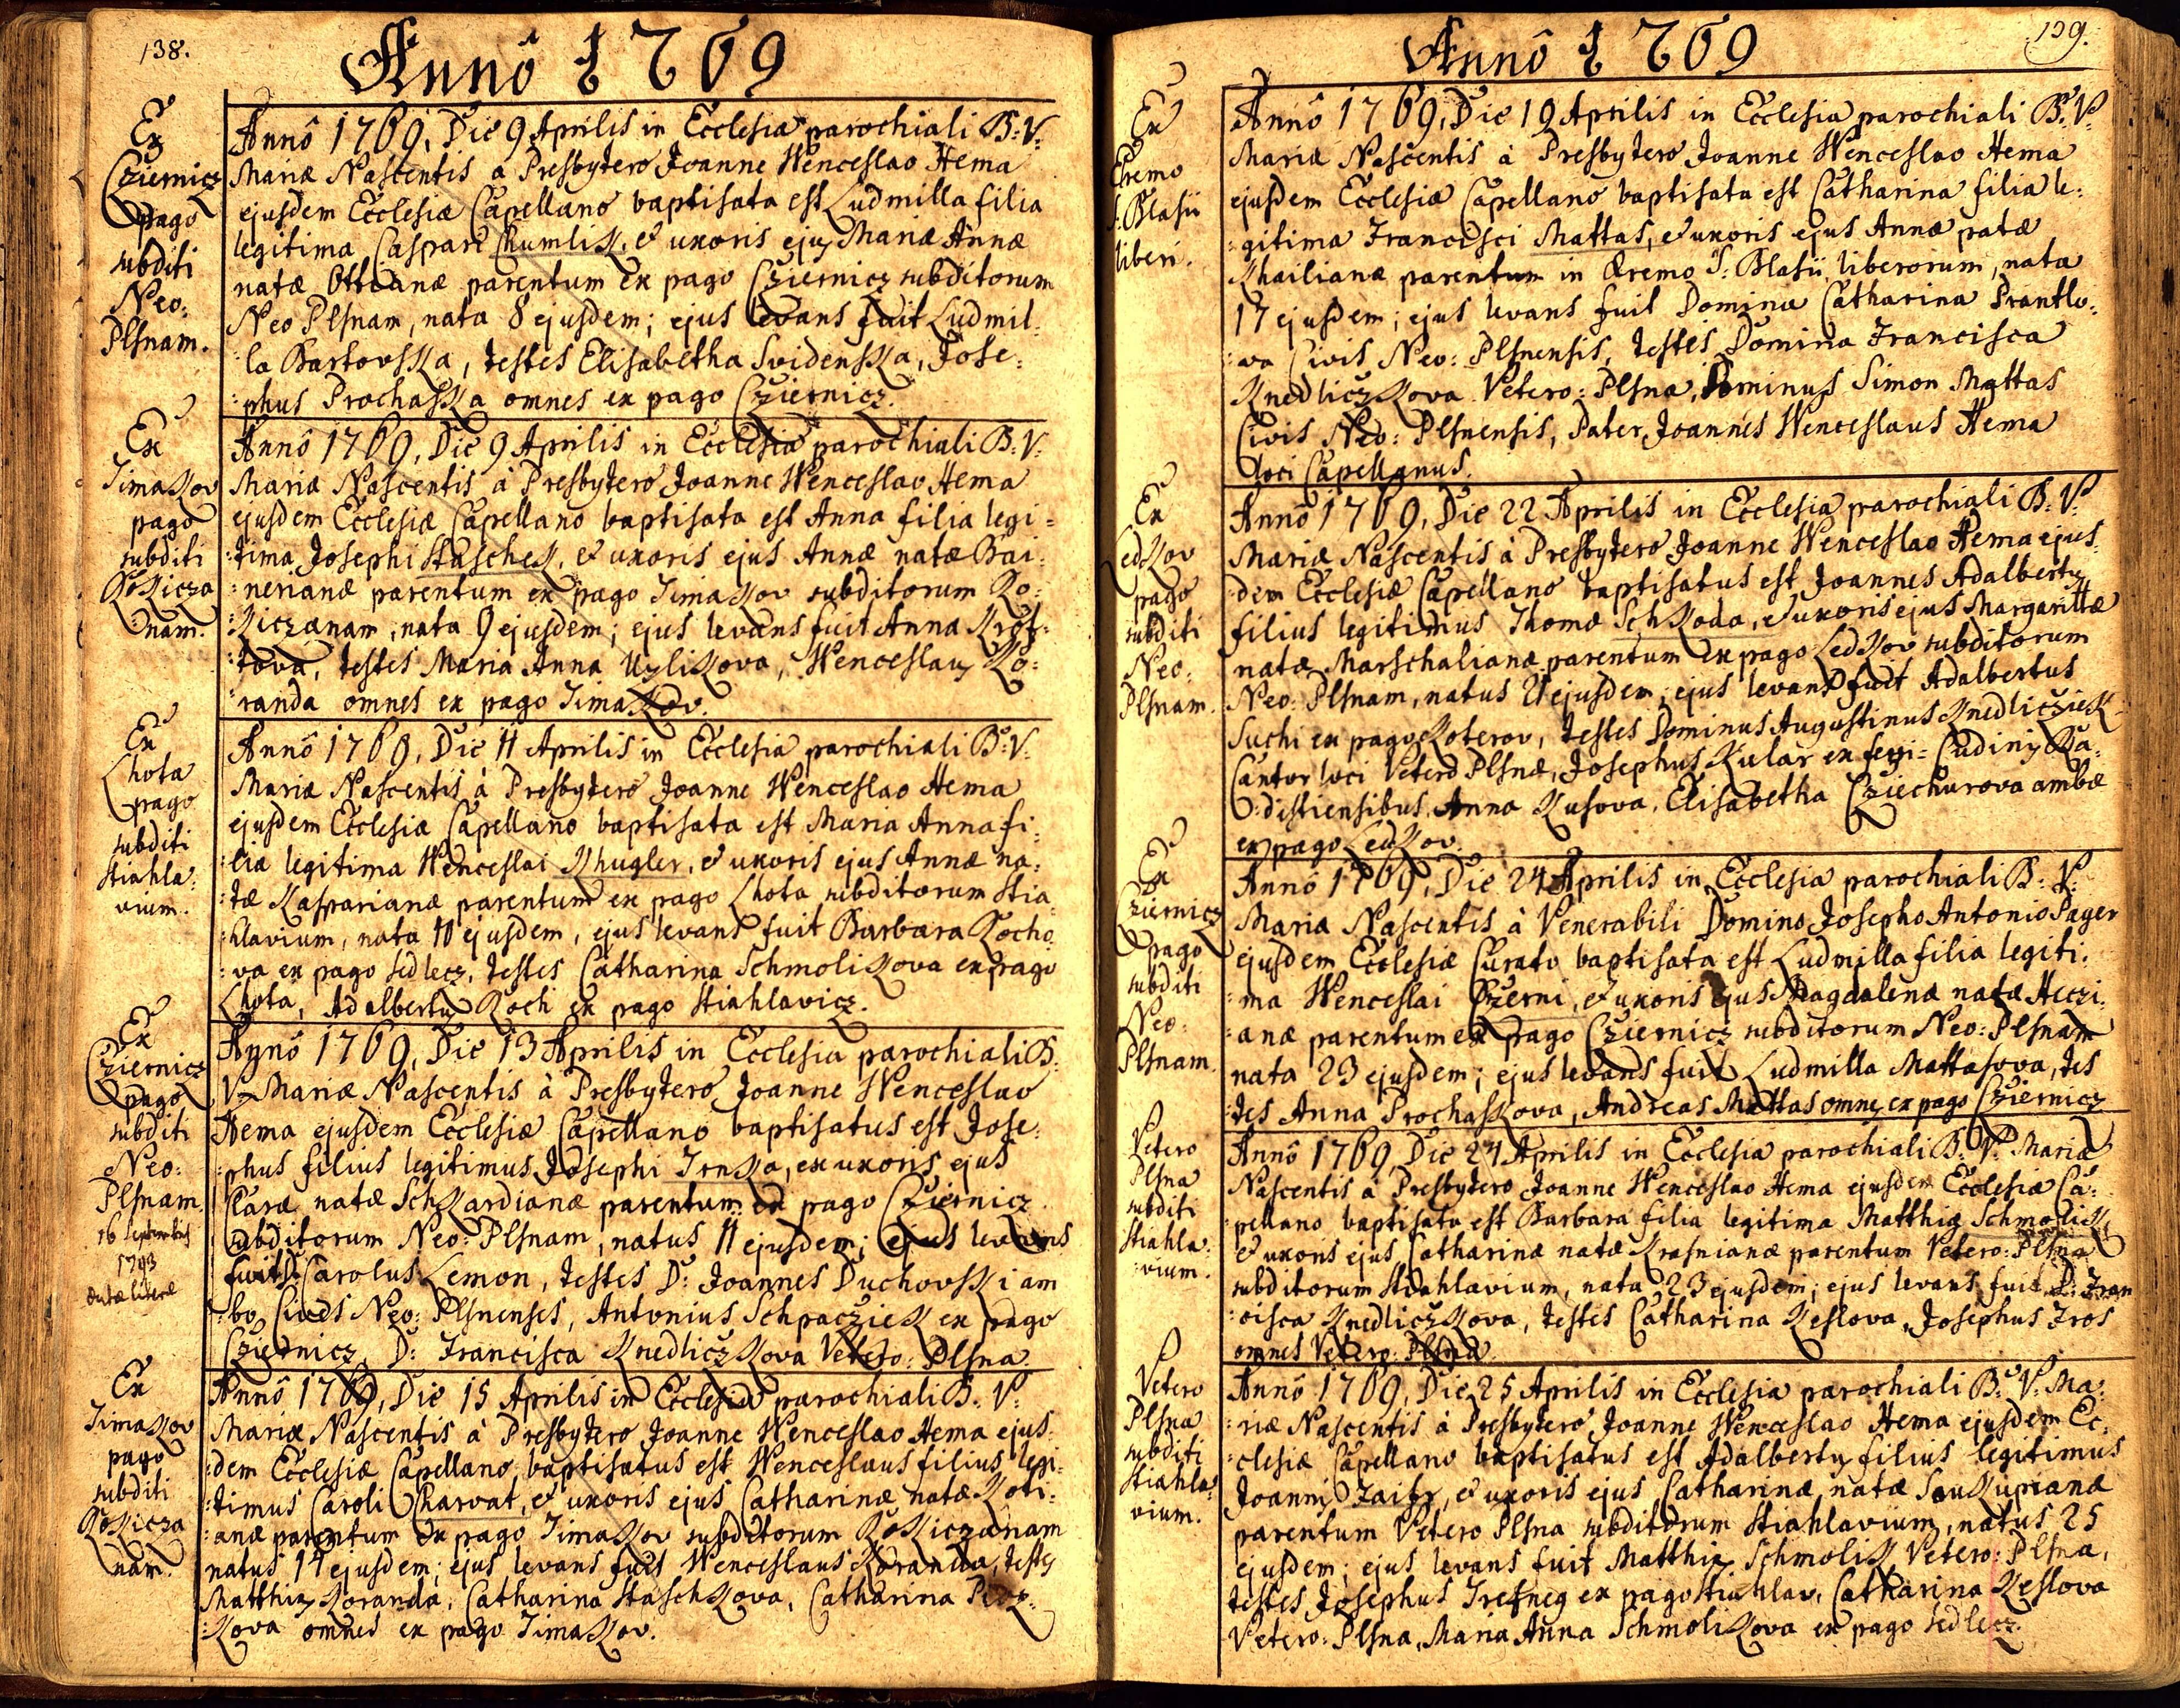 138.
Annô 1769
Ex
Cziernicz
pago
subditi
Neo:
Plsnam.
Annô 1769, Die 9 Aprilis in Ecclesia parochiali B: V:
Mariæ Nascentis a Presbytero Joanne Wenceslao Hema
ejusdem Ecclesiæ Capellano baptisata est Ludmilla filia
legitima Caspari Chumlik, et uxoris ejus Mariæ Annæ
natæ Ottoanæ parentum ex pago Cziernicz subditorum
Neo Plsnam, nata 8 ejusdem; ejus levans fuit Ludmil-
:la Bartovska, testes Elisabetha Svidenska, Jose:
:phus Prochaska omnes ex pago Cziernicz.
Ex
Timakov
pago
subditi
Rokicza
:nam.
Annô 1769, Die 9 Aprilis in Ecclesia parochiali B: V:
Mariæ Nascentis à Presbytero Joanne Wenceslao Hema
ejusdem Ecclesiæ Capellano baptisata est Anna filia legi=
:tima Josephi Staschek, et uxoris ejus Annæ natæ Bai:
:nerianæ parentum ex pago Timakov subditorum Ro:
:kiczanam, nata 9 ejusdem; ejus levans fuit Anna
:tova, testes Maria Anna Uzlikova, Wenceslaus Ko:
:randa omnes ex pago Timakov.
Ex
Lhota
pago
subditi
Stiahla:
vium.
Annô 1769, Die 11 Aprilis in Ecclesia parochiali B: V:
Mariæ Nascentis à Presbytero Joanne Wenceslao Hema
ejusdem Ecclesiæ Capellano baptisata est Maria Anna fi:
:lia legitima Wenceslai Khugler, et uxoris ejus Annæ na:
:tæ Kasparianæ parentum ex pago Lhota subditorum Stia
:hlavium, nata 10 ejusdem, ejus levans fuit Barbara Kocho
:va ex pago Sedlecz, testes Catharina Schmolikova ex pago
Lhota, Adalbertus Koch ex pago Stiahlavicz.
Ex
Cziernicz
pago
subditi
Neo:
Plsnam
16 Septembris
1793
datæ literæ
Annô 1769, Die 13 Aprilis in Ecclesia parochiali B:
V: Mariæ Nascentis à Presbytero Joanne Wenceslao
Hema ejusdem Ecclesiæ Capellano baptisatus est Jose:
:phus filius legitimus Josephi Trnka, ex uxoris ejus
Claræ natæ Schkardianæ parentum ex pago Cziernicz
subditorum Neo: Plsnam, natus 11 ejusdem; ejus levans
fuit D: Carolus Lemon, testes D: Joannes Duchovski am
:bo Cives Neo: Plsnenses, Antonius Schpacziek ex pago
Cziernicz, D: Francisca Knedliczkova Vetero: Plsna.
Ex
Timakov
pago
subditi
Rokicza
nam.
Annô 1769, Die 15 Aprilis in Ecclesia parochiali B: V:
Mariæ Nascentis à Presbytero Joanne Wenceslao Hema ejus:
:dem Ecclesiæ Capellano baptisatus est Wenceslaus filius legi:
:timus Caroli Charvat, et uxoris ejus Catharinæ natæ Koti:
:anæ parentum ex pago Timakov subditorum Rokiczanam
natus 14 ejusdem; ejus levans fuit Wenceslaus Koranda, testes
Matthias Koranda, Catharina Staschkova, Catharina
:kova omnes ex pago Timakov.
139.
Annô 1769
Ex
Eremo
S: Blasii
liberi.
Annô 1769, Die 19 Aprilis in Ecclesia parochiali B: V:
Mariæ Nascentis à Presbytero Joanne Wenceslao Hema
ejusdem Ecclesiæ Capellano baptisata est Catharina filia le:
:gitima Francisci Mattas, et uxoris ejus Annæ natæ
Khailianæ parentum in Eremo S: Blasii liberorum, nata
17 ejusdem; ejus levans fuit Domina Catharina Prantlo:
:va Civis Neo: Plsnensis, testes Domina Francisca
Knedliczkova Vetero: Plsna, Dominus Simon Mattas
Civis Neo: Plsnensis, Pater Joannes Wenceslaus Hema
loci Capellanus.
Ex
Ledkov
pago
subditi
Neo:
Plsnam.
Annô 1769, Die 22 Aprilis in Ecclesia parochiali B: V:
Mariæ Nascentis à Presbytero Joanne Wenceslao Hema ejus
:dem Ecclesiæ Capellano baptisatus est Joannes Adalbertus
filius legitimus Thomæ Schkoda, et uxoris ejus Margarittæ
natæ Marschalianæ parentum ex pago Ledkov subditorum
Neo: Plsnam, natus 21 ejusdem; ejus levans fuit Adalbertus
Suchi ex pago Koterov, testes Dominus Augustinus Knedlicziek
Cantor loci Veterô Plsnæ, Josephus Kular ex Ludinis Ra:
:distiensibus, Anna Kusova, Elisabetha Cziechurova ambæ
ex pago Ledkov.
Ex
Cziernicz
pago
subditi
Neo:
Plsnam.
Annô 1769, Die 24 Aprilis in Ecclesia parochiali B: V:
Mariæ Nascentis à Venerabili Domino Josepho Antonio Pager
ejusdem Ecclesiæ Curato baptisata est Ludmilla filia legiti:
:ma Wenceslai Czerni, et uxoris ejus Magdalenæ natæ Heczi:
:anæ parentum ex pago Cziernicz subditorum Neo: Plsnam
nata 23 ejusdem; ejus levans fuit Ludmilla Mattasova, tes
:tes Anna Prochaskova, Andreas Mattas omnes ex pago Cziernicz
Vetero
Plsna
subditi
Stiahla:
:vium.
Annô 1769, Die 24 Aprilis in Ecclesia parochiali B: V: Mariæ
Nascentis à Presbytero Joanne Wenceslao Hema ejusdem Ecclesiæ Ca:
:pellano baptisata est Barbara filia legitima Matthiæ Schmolik
et uxoris ejus Catharinæ natæ Krasnianæ parentum Vetero: Plsna
subditorum Stiahlavium, nata 23 ejusdem; ejus levans fuit D: Fran
:cisca Knedliczkova, testes Catharina Keslova, Josephus Fros
omnes Vetero: Plsna.
Vetero
Plsna
subditi
Stiahla:
vium.
Annô 1769, Die 25 Aprilis in Ecclesia parochiali B: V: Ma:
:riæ Nascentis à Presbytero Joanne Wenceslao Hema ejusdem Ec:
:clesiæ Capellano baptisatus est Adalbertus filius legitimus
Joannis Zaitz, et uxoris ejus Catharinæ, natæ Soukupianæ
parentum Vetero Plsna subditorum Stiahlavium, natus 25
ejusdem; ejus levans fuit Matthias Schmolik Vetero: Plsna,
testes Josephus Trefneg ex pago Stiahlav, Catharina Keslova
Vetero: Plsna, Maria Anna Schmolikova ex pago Sedlecz.